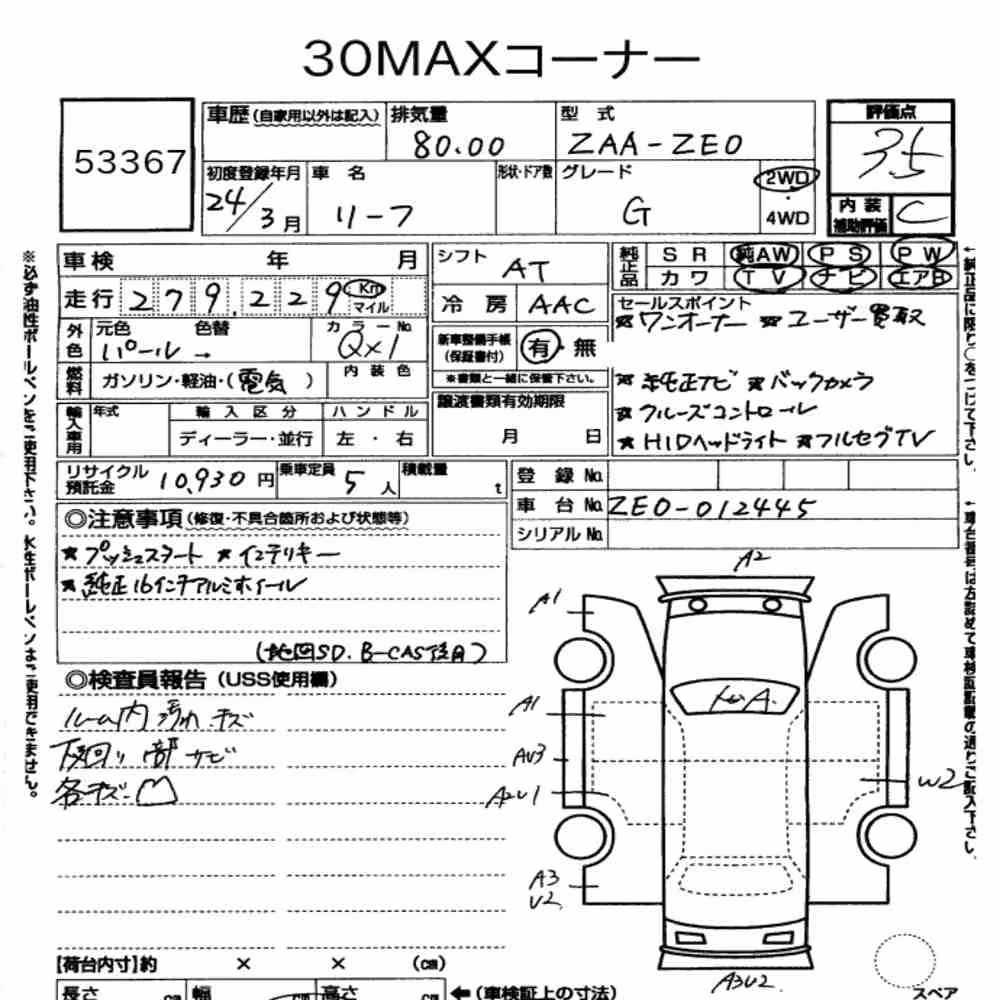 30MAXコーナー
53367
車歴 (自家用以外は記入) 排気量 型 式 評価点
80.00 ZAA-ZE0 3.5
初度登録年月 車 名 形状・ドア数 グレード 2WD・4WD
24/3月 リーフ G
内 装 補助評価 C
※必ず油性ボールペンをご使用下さい。水性ボールペンはご使用できません。
車検 年 月
走行 279,229 Km マイル
シフト AT
冷 房 AAC
純正品 SR 純AW PS PW
カワ TV ナビ エアB
外色 元色 色替 カラーNo.
パール → QX1
燃料 ガソリン・軽油・(電気) 内 装 色
新車整備手帳 (保証書付) 有・無
※書類と一緒に保管下さい。
セールスポイント
★ワンオーナー ★ユーザー買取
★純正ナビ ★バックカメラ
★クルーズコントロール
★HIDヘッドライト ★フルセグTV
輸入車用 年式 輸 入 区 分 ハ ン ド ル
ディーラー・並行 左 ・ 右
譲渡書類有効期限
月 日
リサイクル預託金 10,930 円 乗車定員 5 人 積載量 t
登 録 No.
車 台 No. ZE0-012445
シリアル No.
◎注意事項 (修復・不具合箇所および状態等)
★プッシュスタート ★インテリキー
★純正16インチアルミホイール
(地図SD. B-CAS後日)
◎検査員報告 (USS使用欄)
ルーム内 汚れ キズ
下回り 部 サビ
各キズ
A2
A1
A1
AU3
A2U1
A3
U2
W2
A3U2
スペア
[荷台内寸]約 × × (cm)
長さ cm 幅 cm 高さ cm ←(車検証上の寸法)